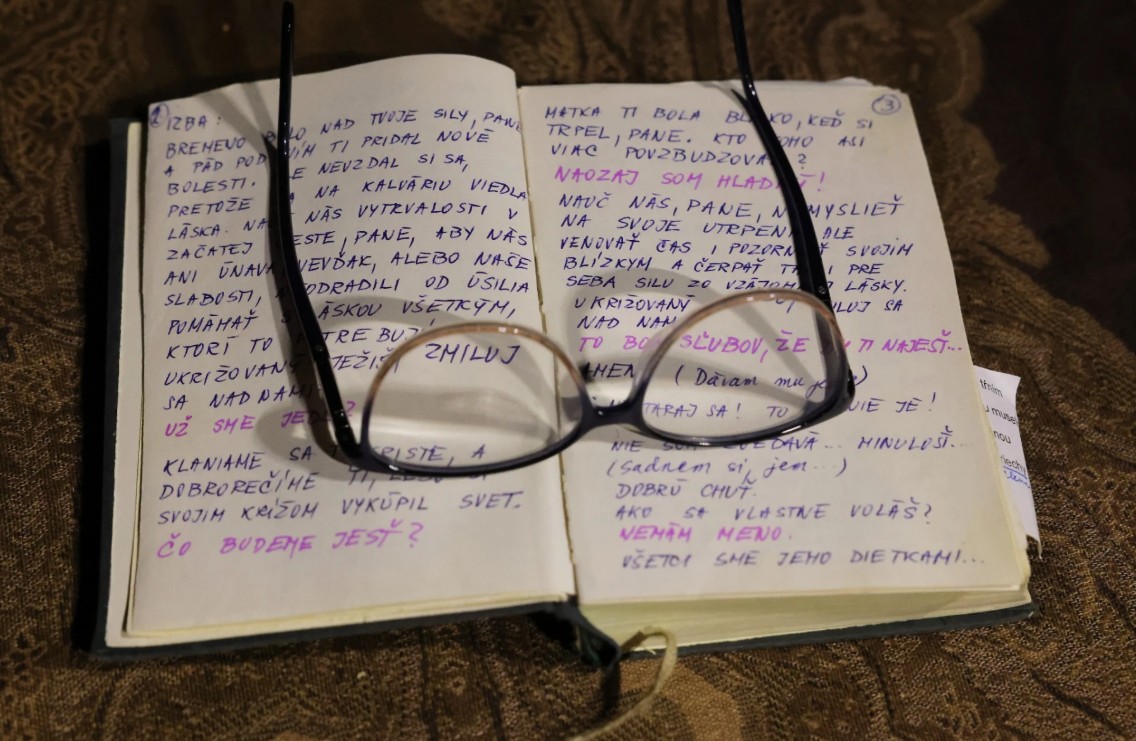 2
IZBA:
BREMENO NAD TVOJE SILY, PANE
A PÁD POD TI PRIDAL NOVÉ
BOLESTI. NEVZDAL SI SA,
PRETOŽE NA KALVÁRIU VIEDLA
LÁSKA. NÁS VYTRVALOSTI V
ZAČATEJ CESTE, PANE, ABY NÁS
ANI ÚNAVA NEVĎAK, ALEBO NAŠE
SLABOSTI, ODRADILI OD ÚSILIA
POMÁHAŤ LÁSKOU VŠETKÝM,
KTORÍ TO POTREBUJÚ
UKRIŽOVANÝ JEŽIŠ ZMILUJ
SA NAD NAMI
UŽ SME JEDLI?
KLANIAME SA KRISTE, A
DOBROREČÍME TI,
SVOJIM KRÍŽOM VYKÚPIL SVET.
ČO BUDEME JESŤ?
3
MATKA TI BOLA BLÍZKO, KEĎ SI
TRPEL, PANE. KTO ŤA
VIAC POVZBUDZOVAL?
NAOZAJ SOM HLADNÝ!
NAUČ NÁS, PANE, NEMYSLIEŤ
NA SVOJE UTRPENIE ALE
VENOVAŤ ČAS I POZORNOSŤ SVOJIM
BLÍZKYM A ČERPAŤ I PRE
SEBA SILU ZO VZÁJOMNEJ LÁSKY.
UKRIŽOVANÝ ZMILUJ SA
NAD NAMI
TO BOLO SĽUBOV, ŽE TI NAJESŤ...
AMEN (Dávam mu)
STARAJ SA! TO NIE JE!
NIE SOM ZVEDAVÁ... MINULOSŤ...
(Sadnem si, jem...)
DOBRÚ CHUŤ.
AKO SA VLASTNE VOLÁŠ?
NEMÁM MENO.
VŠETCI SME JEHO DIETKAMI...